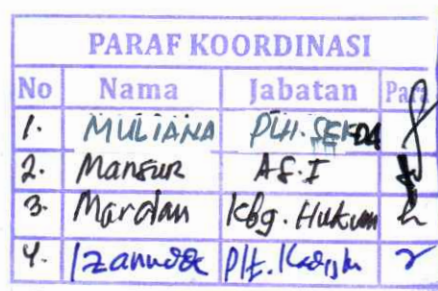 PARAF KOORDINASI
No Nama Jabatan Par
1. MULIANA PLH. SEKDA
2. Mansur AS.I
3. Mardan Kbg. Hukum
4. Plt.